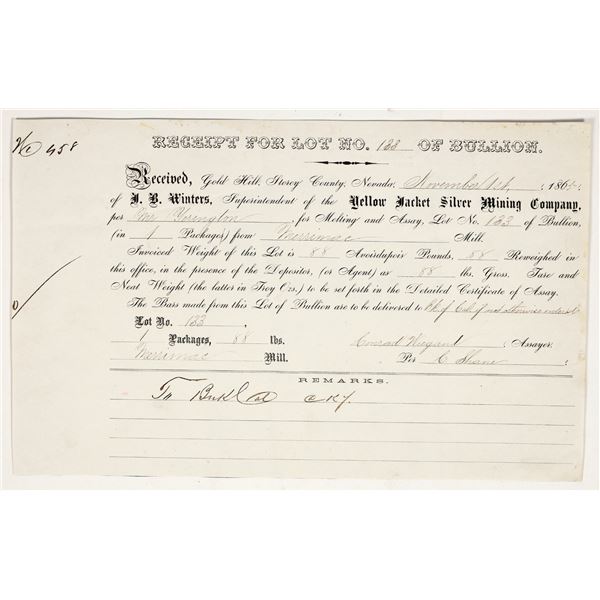 458
RECEIPT FOR LOT NO. 133 OF BULLION.
Received, Gold Hill, Storey County, Nevada, November 1st, 186
of J. B. Winters, Superintendent of the Yellow Jacket Silver Mining Company,
per Yerington, for Melting and Assay, Lot No. 133 of Bullion,
(in 1 Packages) from Merrimac Mill.
Invoiced Weight of this Lot is 88 Avoirdupois Pounds, 88 Reweighed in
this office, in the presence of the Depositor, (or Agent) as 88 lbs. Gross. Tare and
Neat Weight (the latter in Troy Ozs.) to be set forth in the Detailed Certificate of Assay.
The Bars made from this Lot of Bullion are to be delivered to Bk of Cal if not otherwise ordered
Lot No. 133
1 Packages, 88 lbs. Conrad Wiegand Assayer.
Merrimac Mill. Per C. Shane
REMARKS.
To